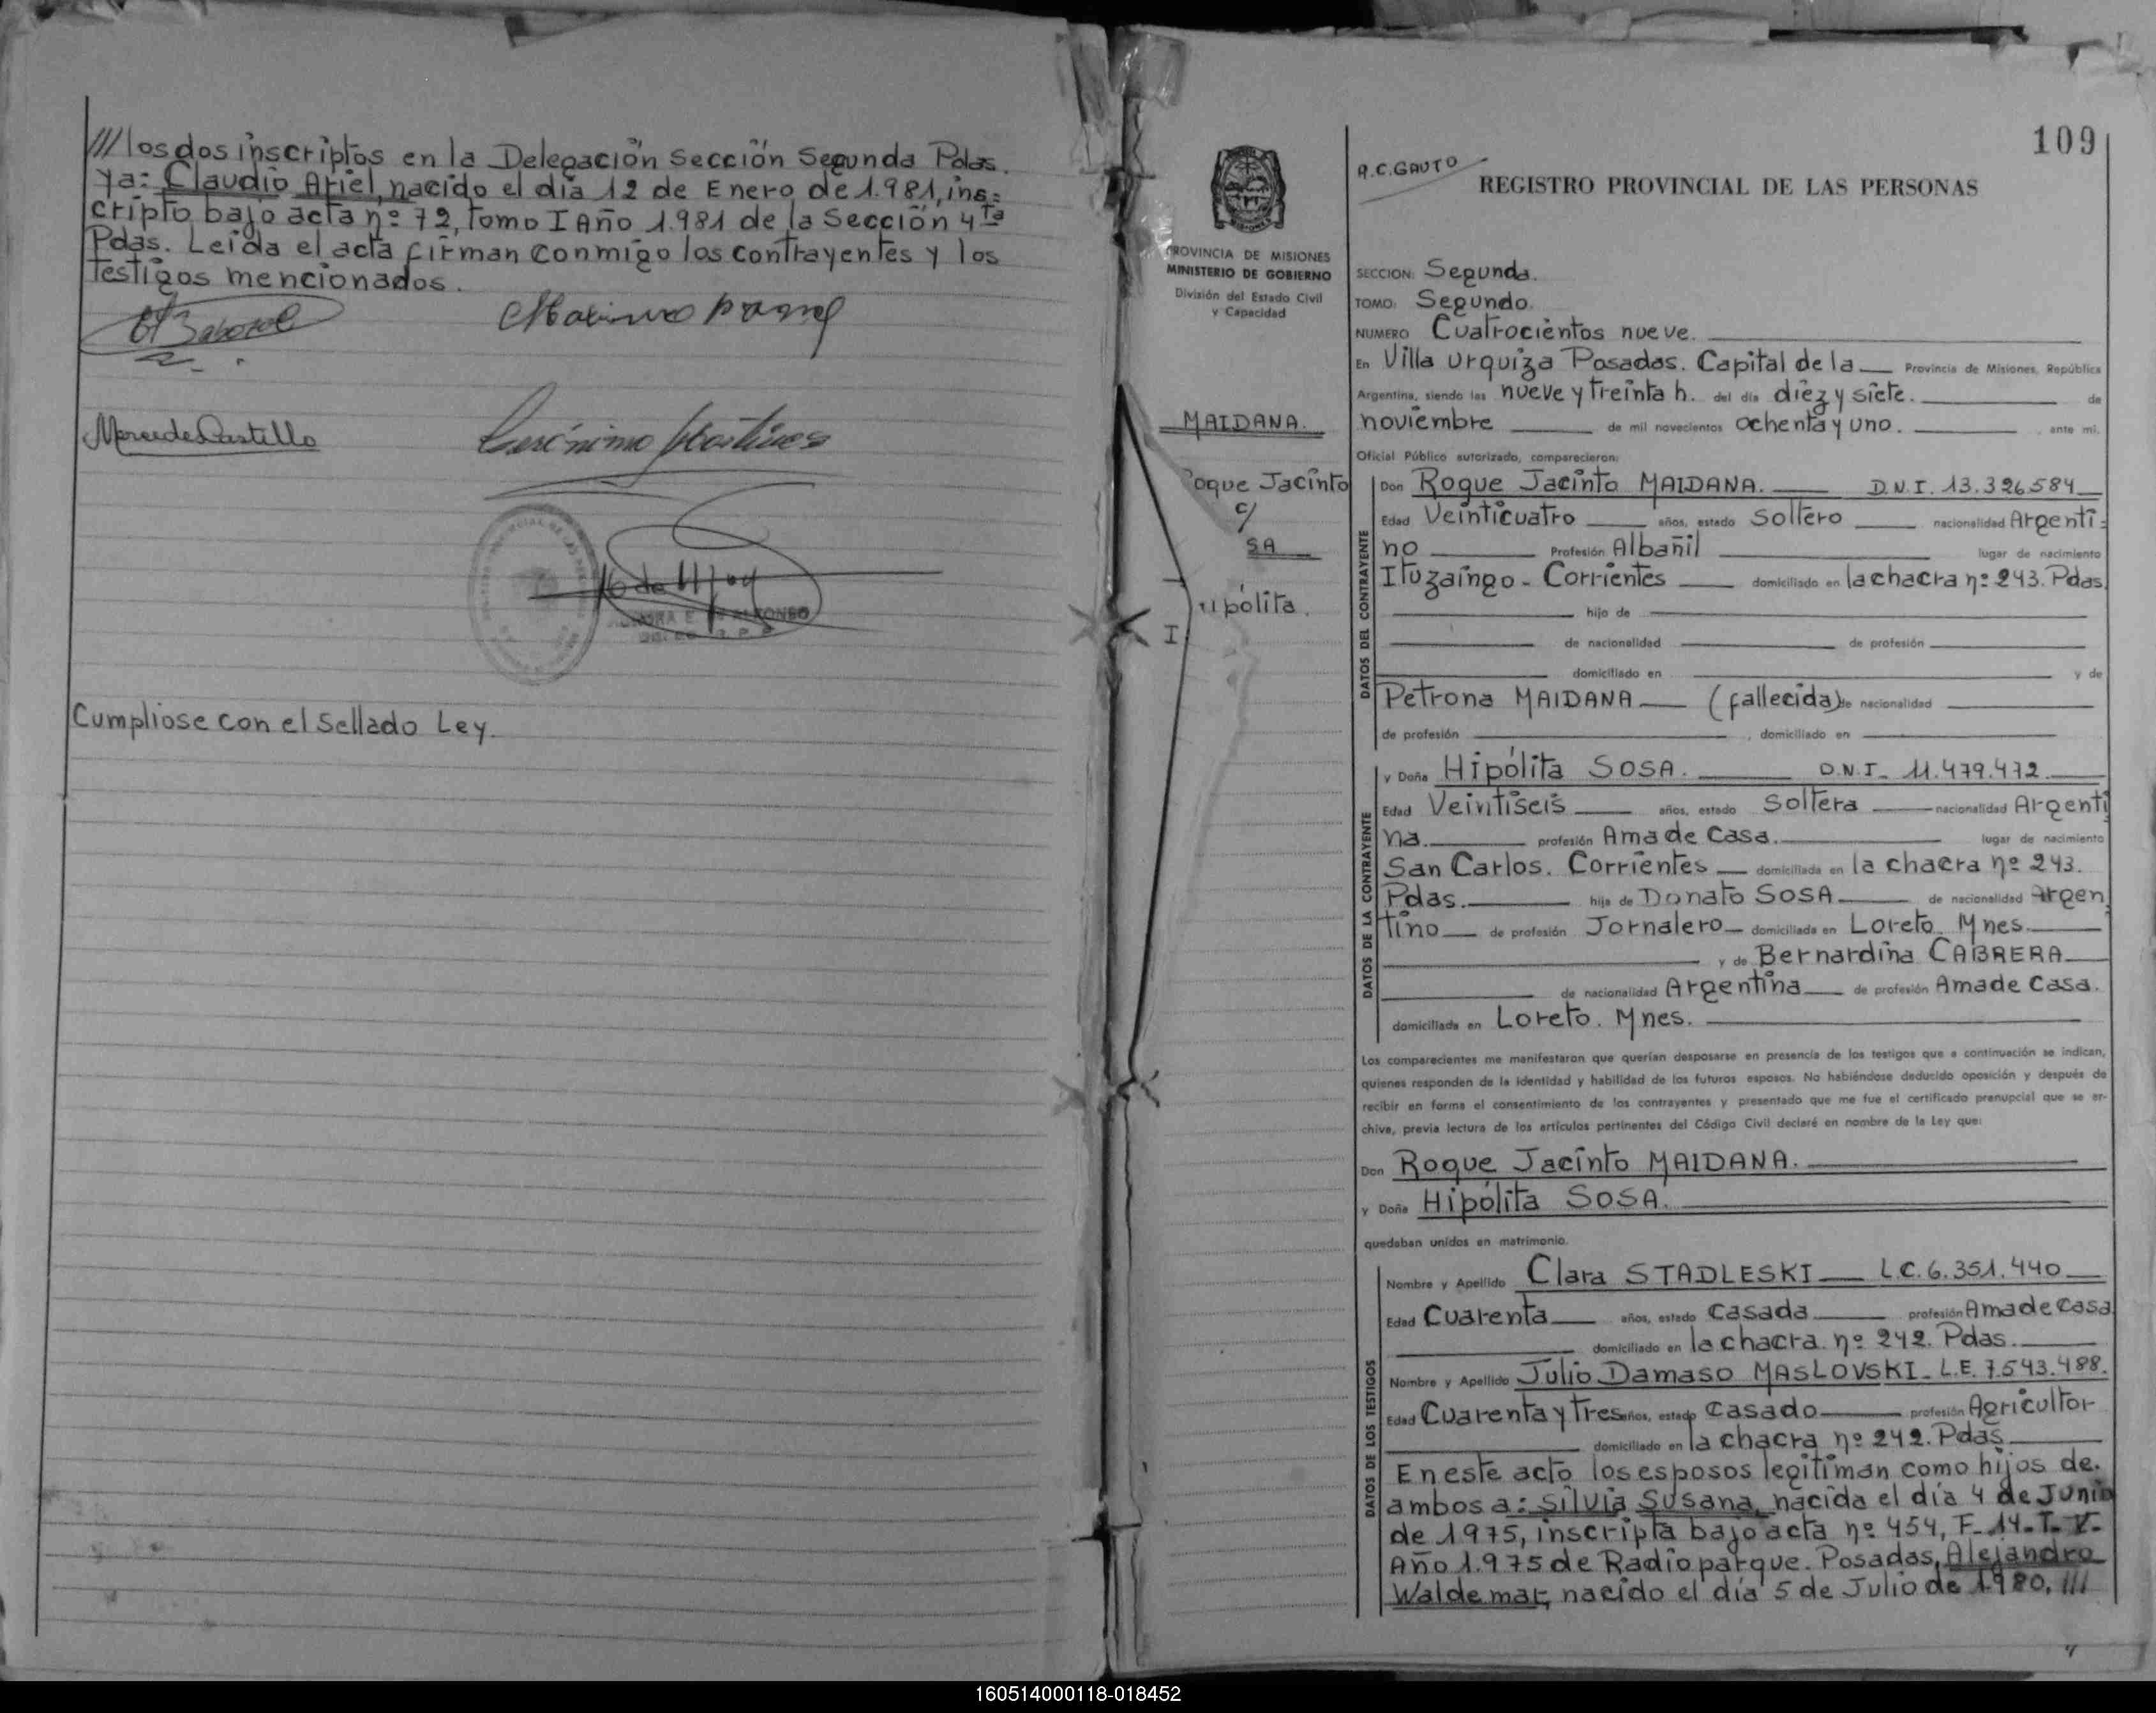 /// los dos inscriptos en la Delegación Sección Segunda Pdas.
ya: Claudio Ariel, nacido el día 12 de Enero de 1.981, ins=
cripto bajo acta nº 72, Tomo I Año 1.981 de la Sección 4ta
Pdas. Leída el acta firman conmigo los contrayentes y los
testigos mencionados.
Mercedes Castillo
Cumpliose con el Sellado Ley.
109
R.C. GAUTO
REGISTRO PROVINCIAL DE LAS PERSONAS
PROVINCIA DE MISIONES
MINISTERIO DE GOBIERNO
División del Estado Civil
y Capacidad
MAIDANA.
oque Jacinto
c/
SA
ipólita.
I
SECCION: Segunda.
TOMO: Segundo.
NUMERO Cuatrocientos nueve.
En Villa Urquiza Posadas. Capital de la Provincia de Misiones, República
Argentina, siendo las nueve y treinta h. del día diez y siete. de
noviembre de mil novecientos ochenta y uno. ante mí.
Oficial Público autorizado, comparecieron:
DATOS DEL CONTRAYENTE
Don Roque Jacinto MAIDANA. D.N.I. 13.326.584
Edad Veinticuatro años, estado Soltero nacionalidad Argenti=
no Profesión Albañil lugar de nacimiento
Ituzaingo - Corrientes domiciliado en la chacra nº 243. Pdas.
hijo de
de nacionalidad de profesión
domiciliado en y de
Petrona MAIDANA (fallecida) de nacionalidad
de profesión , domiciliado en
DATOS DE LA CONTRAYENTE
y Doña Hipólita SOSA. D.N.I. 11.479.472
Edad Veintiseis años, estado Soltera nacionalidad Argenti
na. profesión Ama de Casa. lugar de nacimiento
San Carlos. Corrientes domiciliada en la chacra nº 243.
Pdas. hija de Donato SOSA de nacionalidad Argen
tino de profesión Jornalero domiciliada en Loreto. Mnes.
y de Bernardina CABRERA
de nacionalidad Argentina de profesión Ama de Casa.
domiciliada en Loreto. Mnes.
Los comparecientes me manifestaron que querían desposarse en presencia de los testigos que a continuación se indican,
quienes responden de la identidad y habilidad de los futuros esposos. No habiéndose deducido oposición y después de
recibir en forma el consentimiento de los contrayentes y presentado que me fue el certificado prenupcial que se ar-
chiva, previa lectura de los artículos pertinentes del Código Civil declaré en nombre de la Ley que:
Don Roque Jacinto MAIDANA.
y Doña Hipólita SOSA.
quedaban unidos en matrimonio.
DATOS DE LOS TESTIGOS
Nombre y Apellido Clara STADLESKI L.C. 6.351.440
Edad Cuarenta años, estado Casada profesión Ama de Casa
domiciliado en la chacra nº 242. Pdas.
Nombre y Apellido Julio Damaso MASLOVSKI - L.E. 7.543.488.
Edad Cuarenta y tres años, estado Casado profesión Agricultor
domiciliado en la chacra nº 242. Pdas
En este acto los esposos legitiman como hijos de
ambos a: Silvia Susana, nacida el día 4 de Junio
de 1975, inscripta bajo acta nº 454, F- 14- T- V-
Año 1.975 de Radio parque. Posadas, Alejandro
Waldemar, nacido el día 5 de Julio de 1980, ///
160514000118-018452